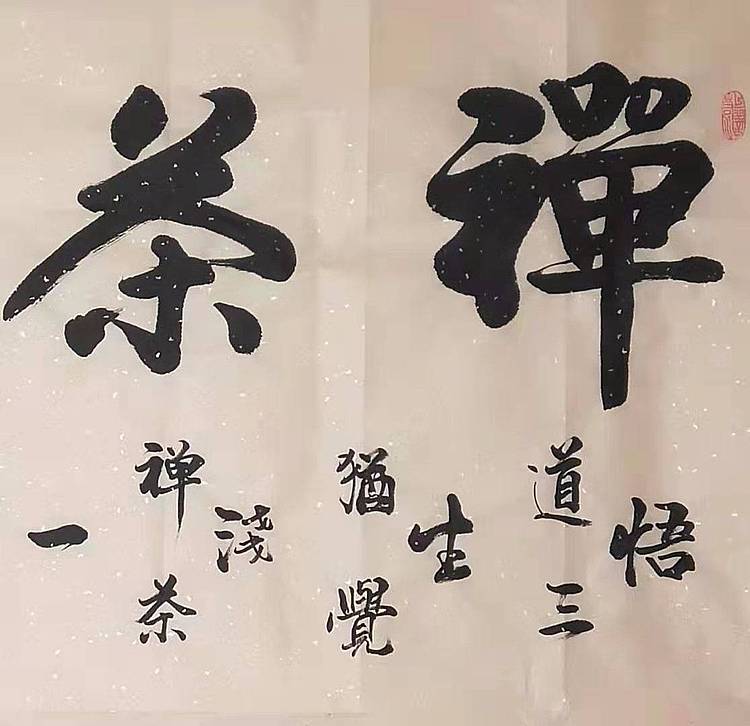 禪茶
悟
道三
生
猶覺
淺
禅茶
一